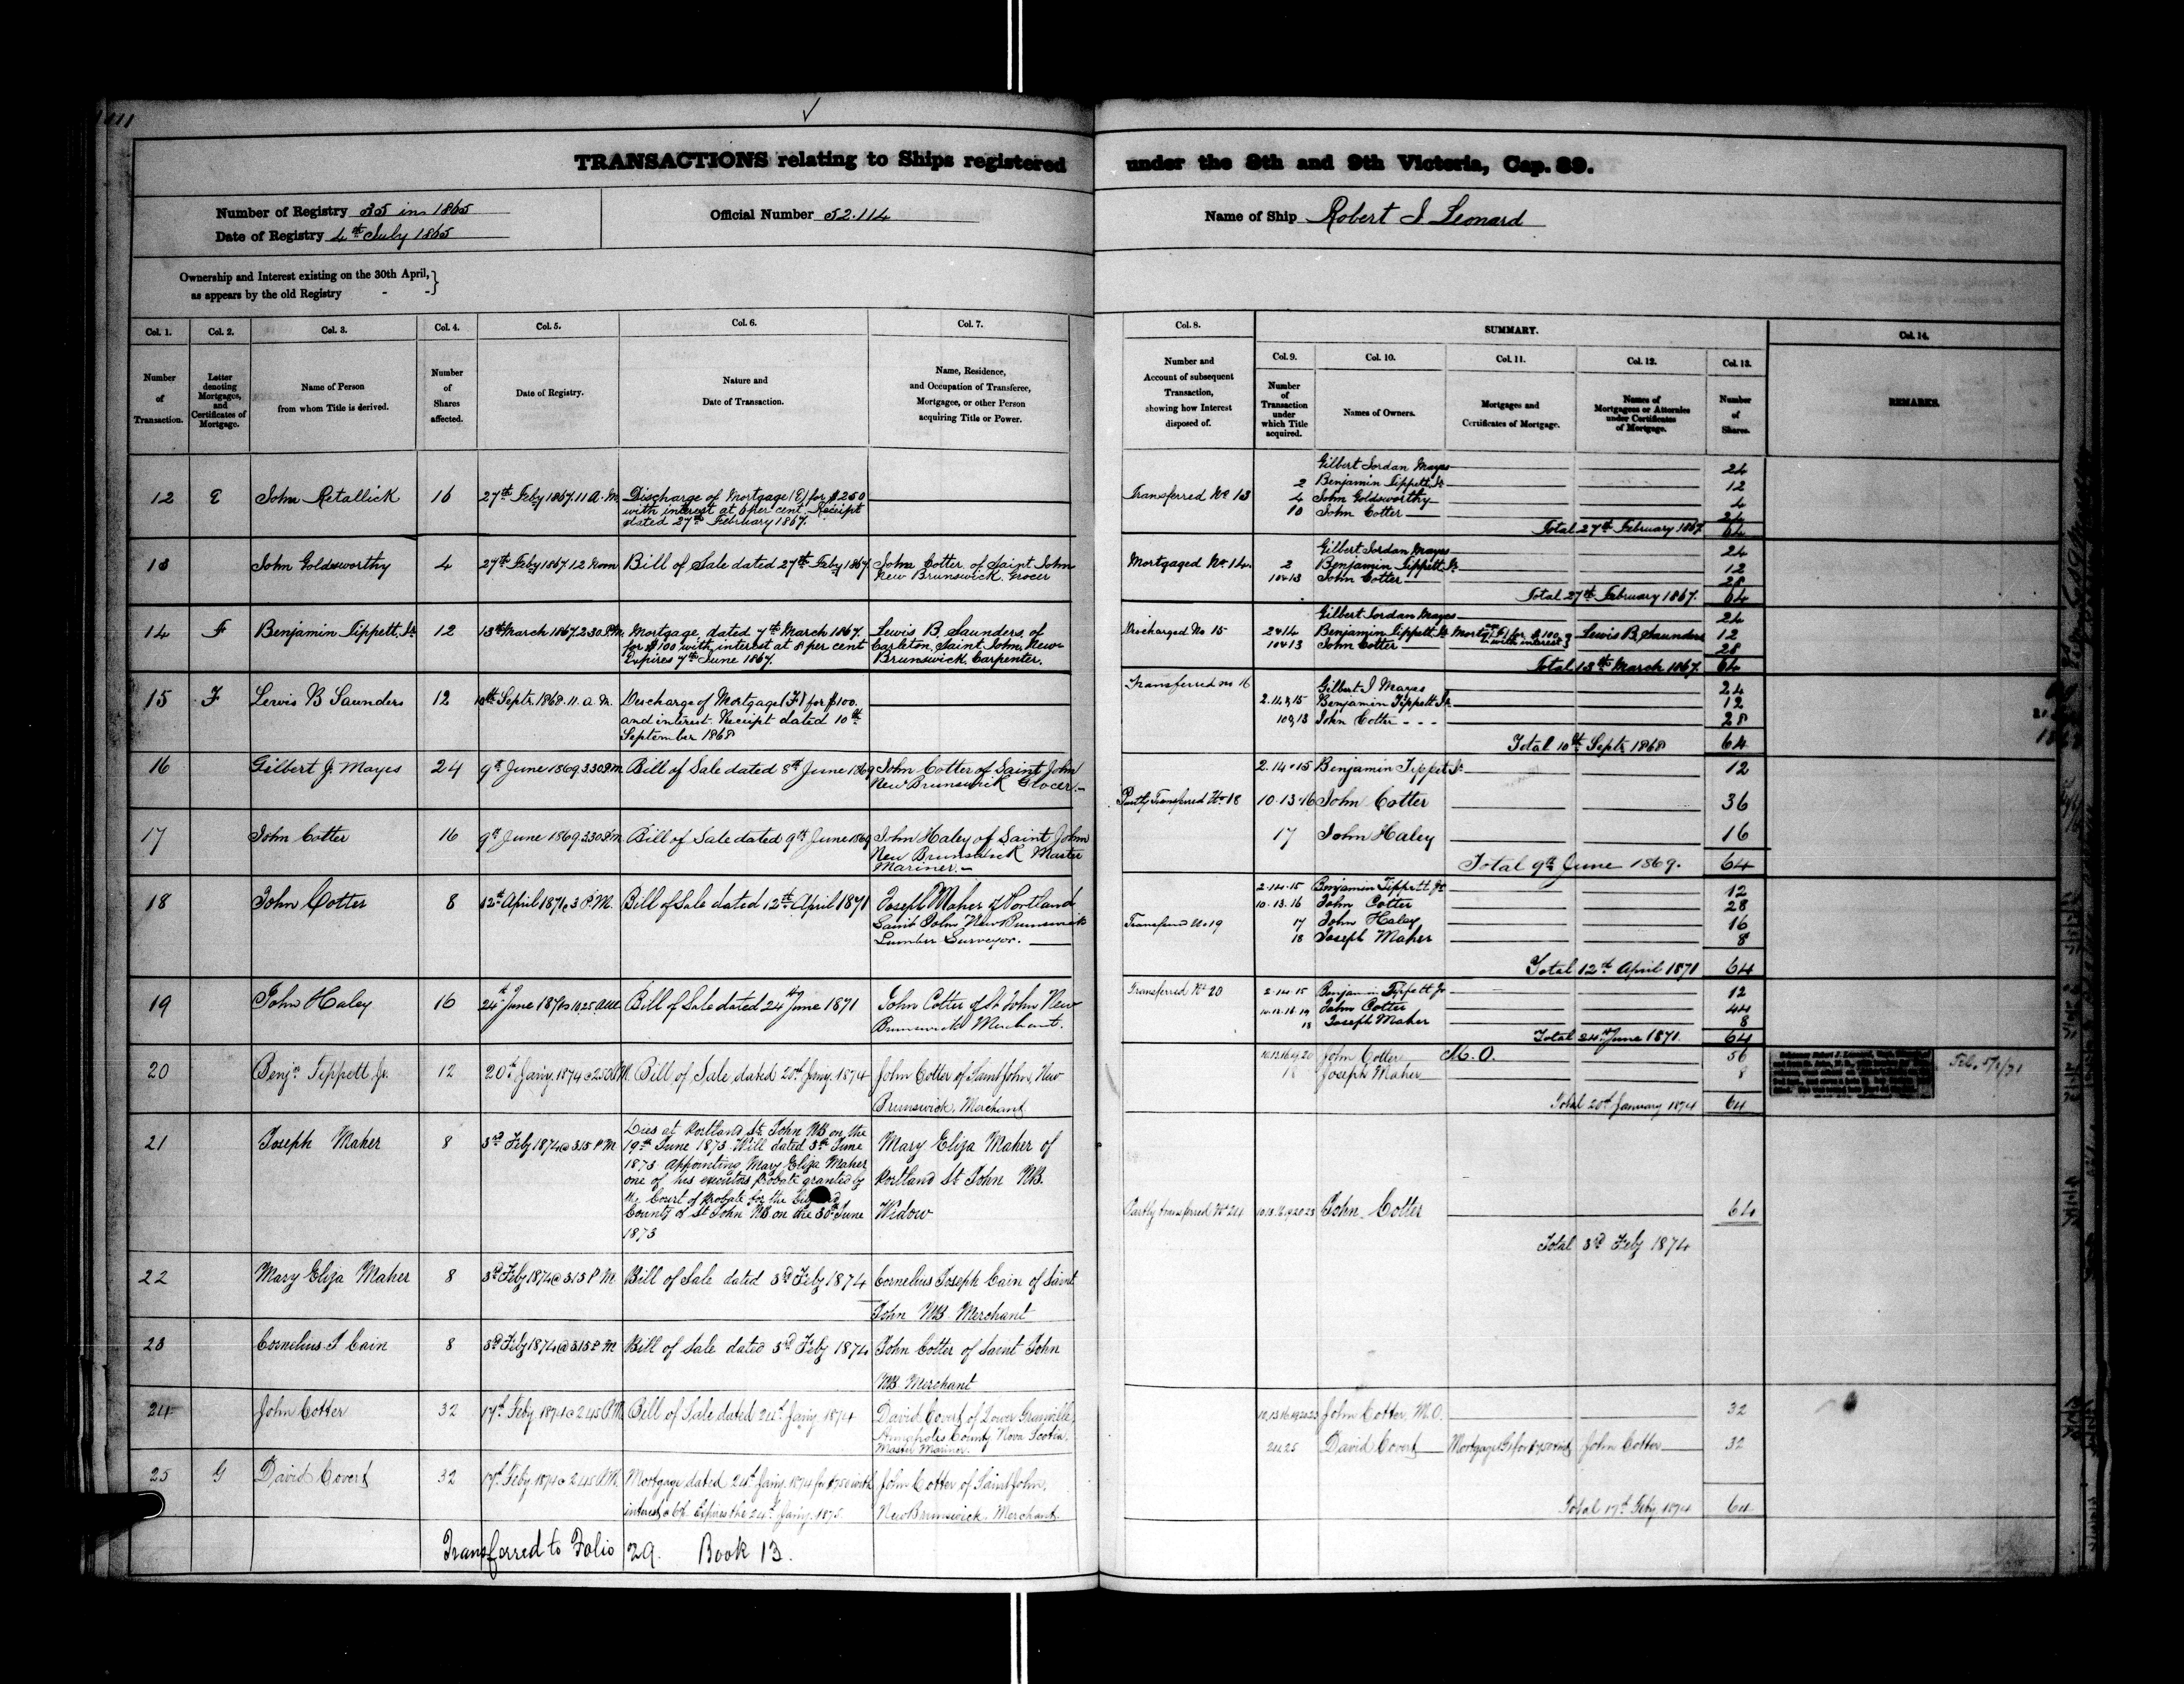 TRANSACTIONS relating to Ships registered under the 8th and 9th Victoria, Cap. 89.
Number of Registry 35 in 1865
Date of Registry 4th July 1865
Official Number 52.114
Name of Ship Robert J Leonard
Ownership and Interest existing on the 30th April,
as appears by the old Registry - -
Col. 1. Col. 2. Col. 3. Col. 4. Col. 5. Col. 6. Col. 7.
Number of Transaction.
Letter denoting Mortgages, and Certificates of Mortgage.
Name of Person from whom Title is derived.
Number of Shares affected.
Date of Registry.
Nature and Date of Transaction.
Name, Residence, and Occupation of Transferee, Mortgagee, or other Person acquiring Title or Power.
12 E John Retallick 16 27th Feby 1867. 11 A.M. Discharge of Mortgage (E) for $250
with interest at 6 per cent. Receipt
dated 27th February 1867.
13 John Goldsworthy 4 27th Feby 1867 12 Noon Bill of Sale dated 27th Feby 1867 John Cotter of Saint John
New Brunswick Grocer
14 F Benjamin Tippett Jr 12 13th March 1867. 2.30 P.M. Mortgage dated 7th March 1867. Lewis B. Saunders of
for $100 with interest at 8 per cent Carleton, Saint John, New
Expires 7th June 1867. Brunswick, Carpenter.
15 F Lewis B Saunders 12 10th Septr. 1868. 11. a.m. Discharge of Mortgage (F) for $100.
and interest. Receipt dated 10th
September 1868
16 Gilbert J. Mayes 24 9th June 1869 3.30 P.M. Bill of Sale dated 8th June 1869 John Cotter of Saint John
New Brunswick Grocer.
17 John Cotter 16 9th June 1869 3.30 P.M. Bill of Sale dated 9th June 1869 John Haley of Saint John
New Brunswick Master
Mariner.
18 John Cotter 8 12th April 1871 @ 3 P.M. Bill of Sale dated 12th April 1871 Joseph Maher of Portland
Saint John New Brunswick
Lumber Surveyor.
19 John Haley 16 24th June 1871 Bill of Sale dated 24th June 1871 John Cotter of St John New
Brunswick Merchant.
20 Benjn Tippett Jr. 12 20th Jany. 1874 Bill of Sale dated 20th Jany. 1874 John Cotter of Saint John, New
Brunswick, Merchant
21 Joseph Maher 8 3rd Feby 1874 @ 3.15 P.M. Dies at Portland St. John NB on the
19th June 1873. Will dated 3rd June
1873 appointing Mary Eliza Maher
one of his executors Probate granted by
the Court of Probate for the City and
County of St John NB on the 30th June
1873
Mary Eliza Maher of
Portland St John NB.
Widow
22 Mary Eliza Maher 8 3rd Feby 1874 @ 3.15 P.M. Bill of Sale dated 3rd Feby 1874 Cornelius Joseph Cain of Saint
John NB Merchant
23 Cornelius J Cain 8 3rd Feby 1874 @ 3.15 P.M. Bill of Sale dated 3rd Feby 1874 John Cotter of Saint John
NB Merchant
24 John Cotter 32 17th Feby 1874 @ 2.45 P.M. Bill of Sale dated 24th Jany. 1874 David Covert of Lower Granville,
Annapolis County Nova Scotia,
Master Mariner.
25 G David Covert 32 17th Feby 1874 @ 2.45 P.M. Mortgage dated 24th Jany. 1874 for $750 with John Cotter of Saint John,
interest @ 6%. Expires the 24th Jany. 1875. New Brunswick. Merchant.
Transferred to Folio 29. Book 13.
Col. 8. SUMMARY. Col. 14.
Col. 9. Col. 10. Col. 11. Col. 12. Col. 13.
Number and Account of subsequent Transaction, showing how Interest disposed of.
Number of Transaction under which Title acquired.
Names of Owners.
Mortgages and Certificates of Mortgage.
Names of Mortgagees or Attornies under Certificates of Mortgage.
Number of Shares.
REMARKS.
Gilbert Jordan Mayes 24
2 Benjamin Tippett Jr 12
Transferred No 13 4 John Goldsworthy 4
10 John Cotter 24
Total 27th February 1867 64
Gilbert Jordan Mayes 24
Mortgaged No 14. 2 Benjamin Tippett Jr 12
10&13 John Cotter 28
Total 27th February 1867. 64
Gilbert Jordan Mayes 24
Discharged No 15 2&14 Benjamin Tippett Jr Mortgage (F) for $100 with interest Lewis B. Saunders 12
10&13 John Cotter 28
Total 13th March 1867. 64
Transferred no 16 Gilbert J Mayes 24
2.14&15 Benjamin Tippett Jr. 12
10&13 John Cotter 28
Total 10th Septr 1868 64
2.14.15 Benjamin Tippet Jr 12
Partly Transferred No 18 10.13.16 John Cotter 36
17 John Haley 16
Total 9th June 1869. 64
2.14.15 Benjamin Tippett Jr 12
10.13.16 John Cotter 28
Transferred No 19 17 John Haley 16
18 Joseph Maher 8
Total 12th April 1871 64
Transferred No 20 2.14.15 Benjamin Tippett Jr 12
10.13.16.19 John Cotter 44
18 Joseph Maher 8
Total 24th June 1871. 64
10.13.16.19.20 John Cotter M.O. 56
18 Joseph Maher 8
Total 20th January 1874 64
Partly transferred No 24 10.13.16.19.20.23 John Cotter 64
Total 3rd Feby 1874
10.13.16.19.20.23 John Cotter, M.O. 32
24.25 David Covert Mortgage G for $750 & Int John Cotter 32
Total 17th Feby. 1874 64